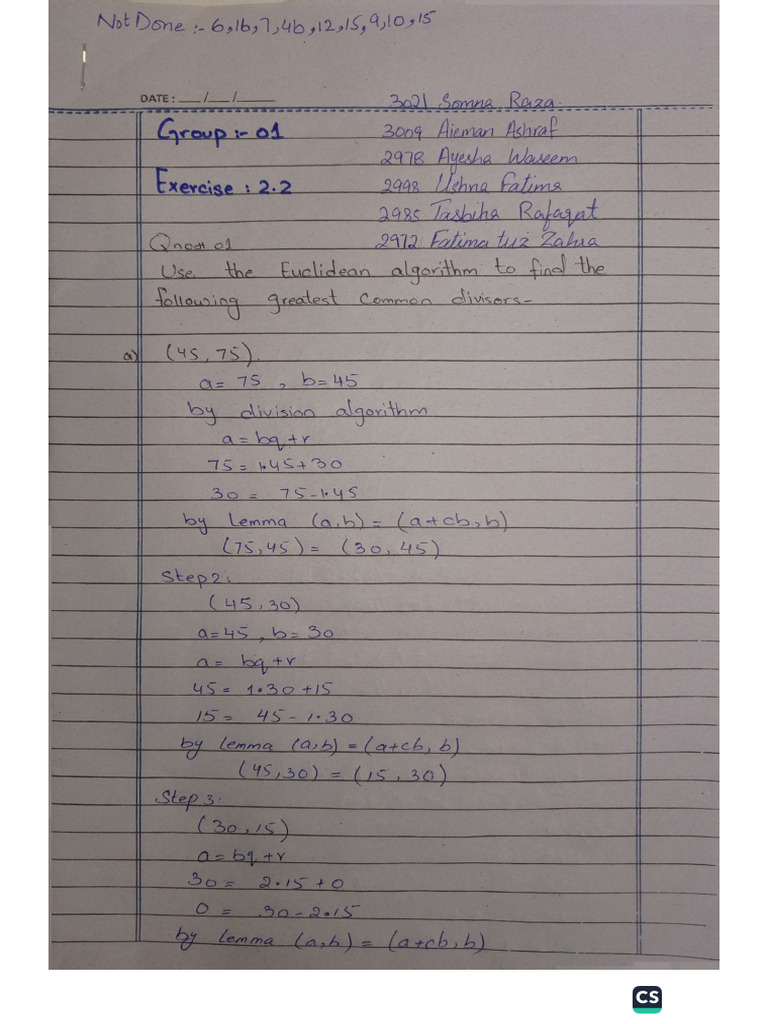 Not Done :- 6, 1b, 7, 4b, 12, 15, 9, 10, 15
DATE: __/__/____
3021 Somna Raza.
Group :- 01
3009 Aieman Ashraf
2978 Ayesha Waseem
Exercise : 2.2
2998 Ushna Fatima
2985 Tasbiha Rafaqat
Qno# 01
2972 Fatima tuz Zahra
Use the Euclidean algorithm to find the
following greatest common divisors-
a) (45, 75).
a= 75 , b=45
by division algorithm
a = bq+r
75 = 1.45+30
30 = 75-1.45
by Lemma (a,b) = (a+cb, b)
(75,45) = (30, 45)
Step2:
(45,30)
a=45 , b=30
a= bq+r
45 = 1.30+15
15 = 45-1.30
by lemma (a,b) = (a+cb, b)
(45,30) = (15, 30)
Step 3:
(30,15)
a=bq+r
30 = 2.15+0
0 = 30-2.15
by lemma (a,b) = (a+cb, b)
CS